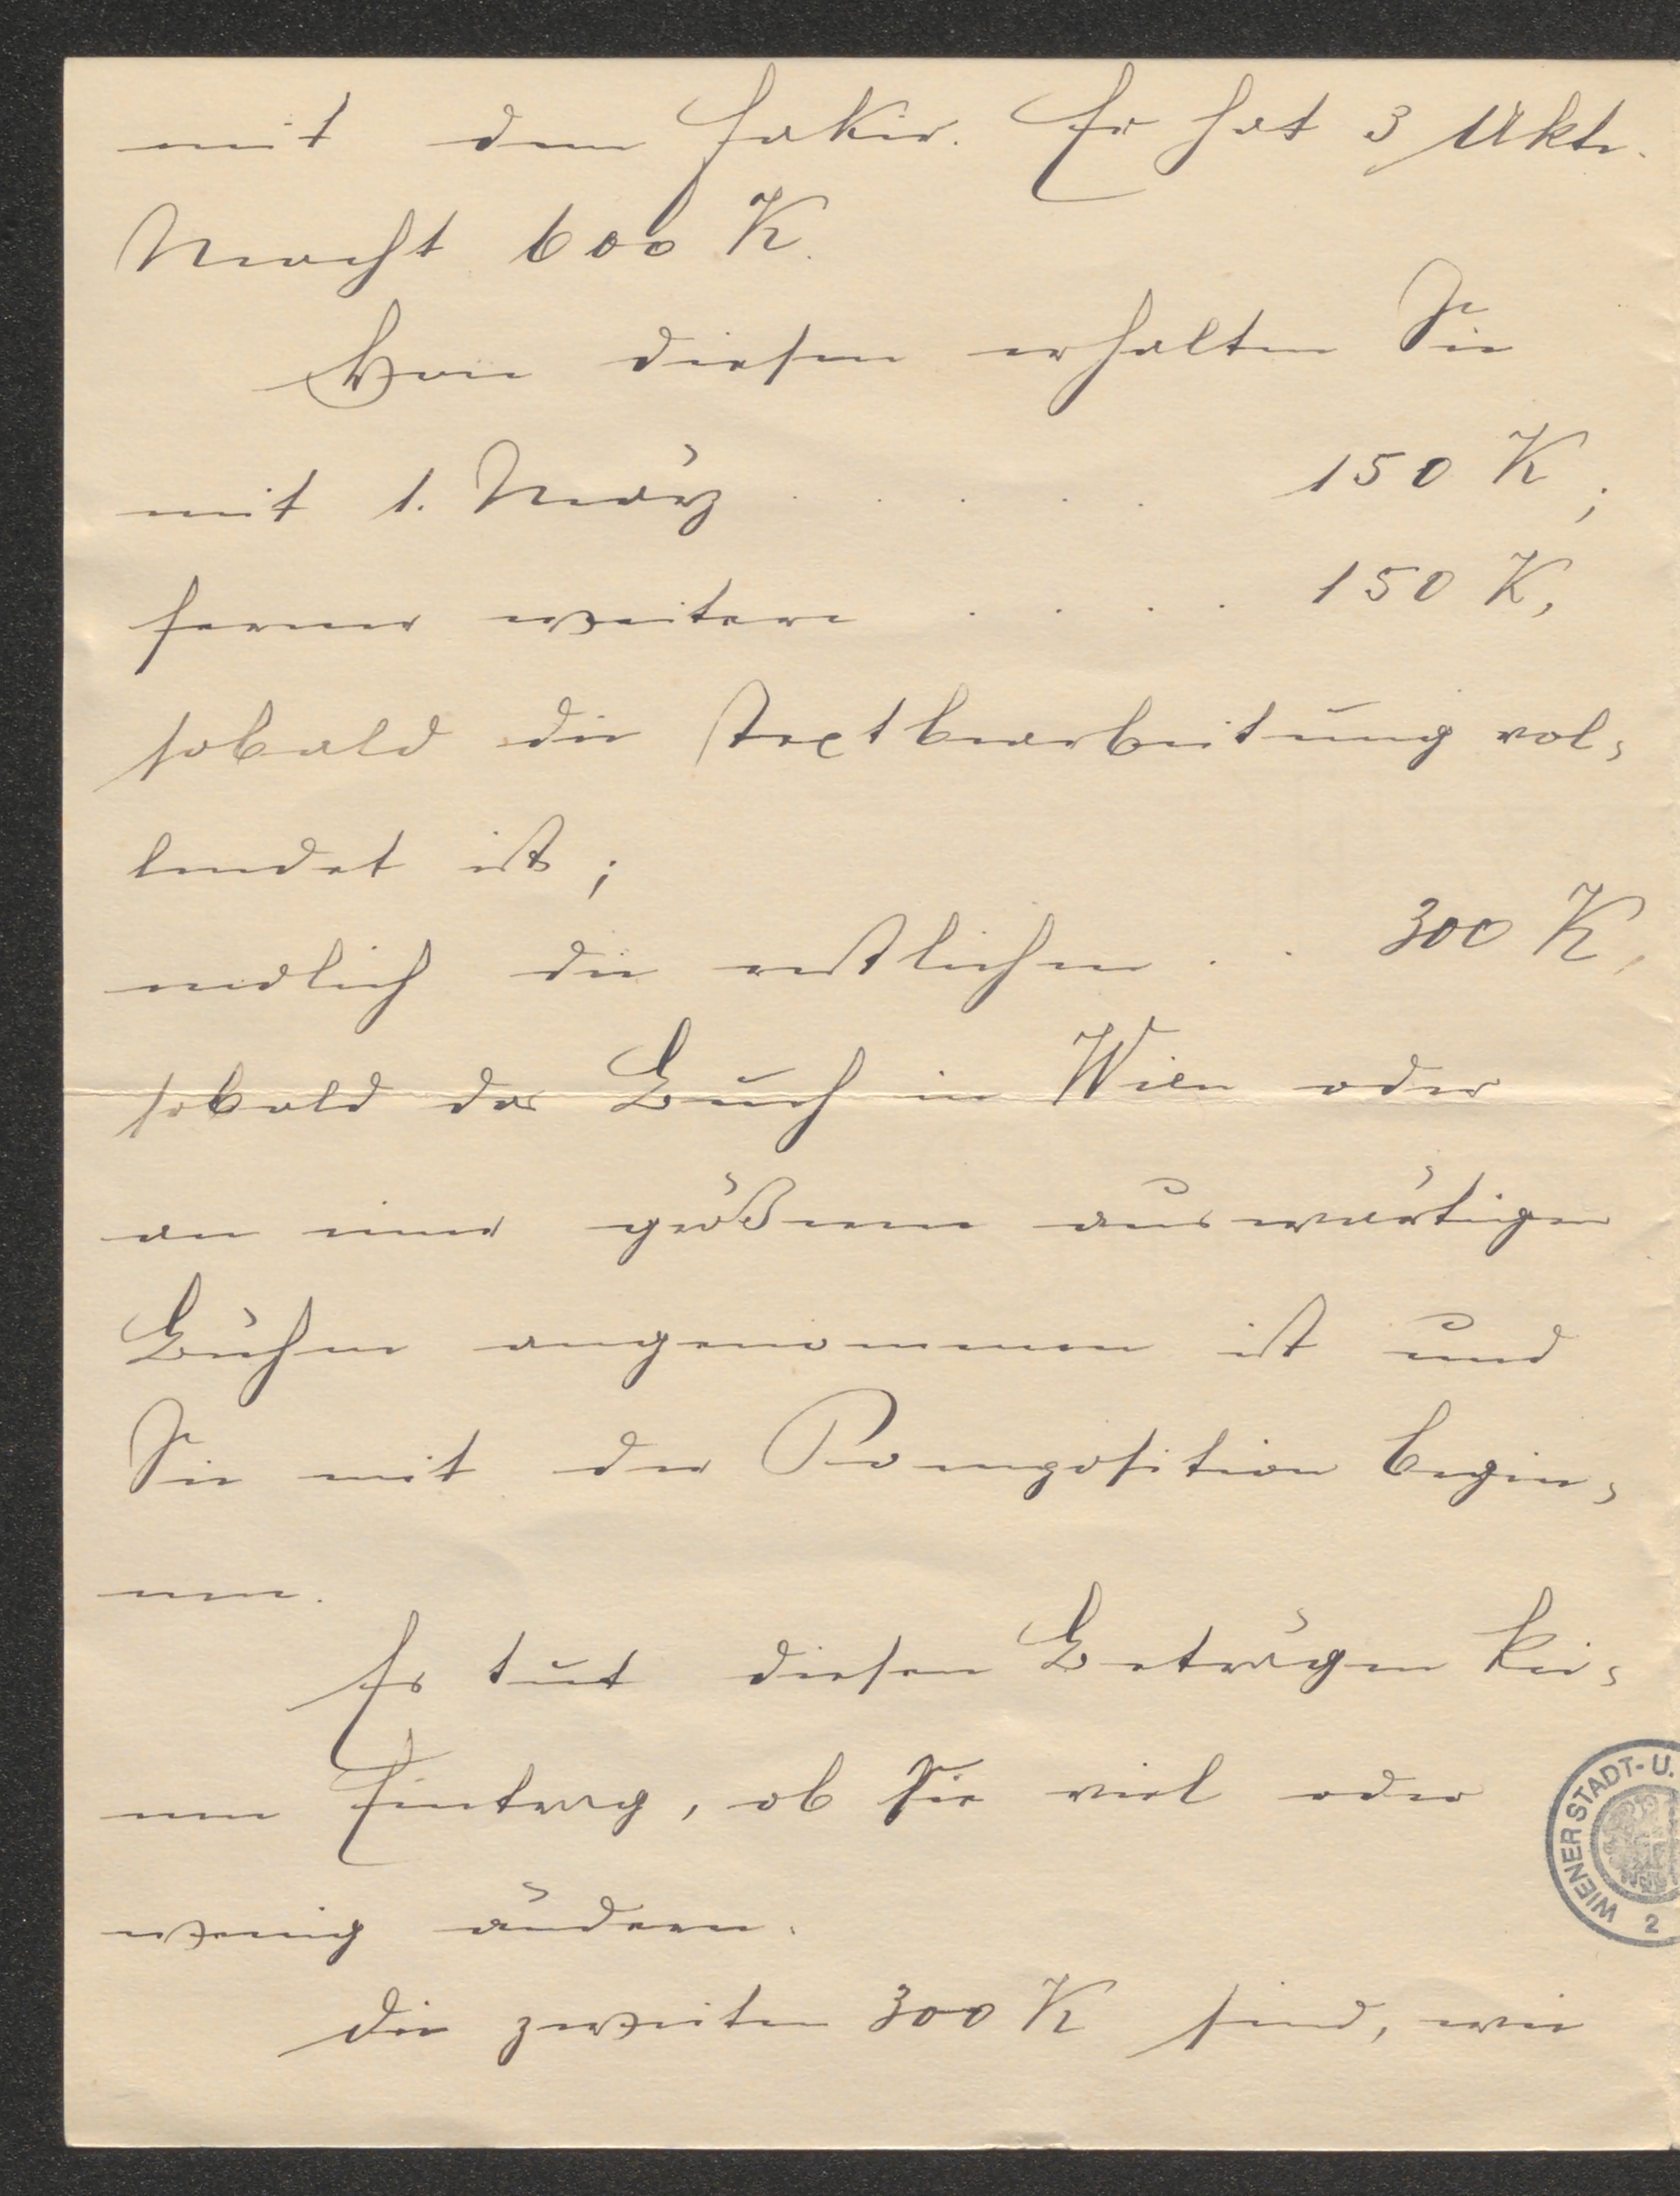 mit dem Fakir. Er hat 3 Akte.
Macht 600 K.
Von diesen erhalten Sie
mit 1. März . . . . . 150 K;
ferner weitere . . . . 150 K,
sobald die Textbearbeitung vol-
lendet ist;
endlich die restlichen . . 300 K,
sobald das Buch in Wien oder
an einer größeren auswärtigen
Bühne angenommen ist und
Sie mit der Komposition begin-
nen.
Es tut diesen Beträgen kei-
nen Eintrag, ob Sie viel oder
wenig ändern.
Die zweiten 300 K sind, wie
WIENER STADT- U.
2